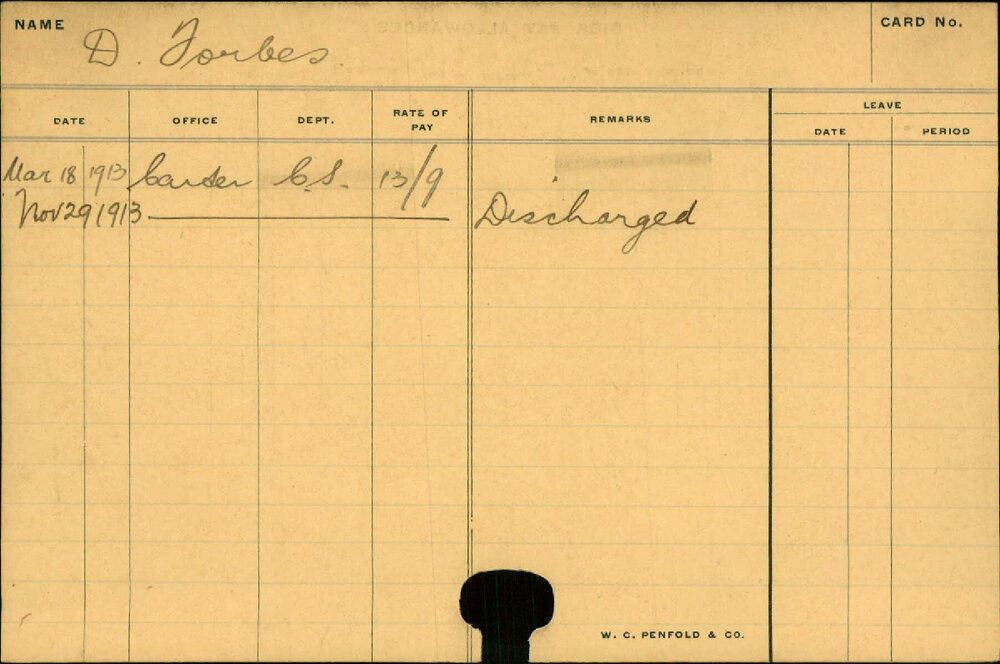 NAME D. Forbes. CARD No.
LEAVE
DATE OFFICE DEPT. RATE OF PAY REMARKS DATE PERIOD
Mar 18 1913 Carter C.S. 13/9
Nov 29 1913 Discharged
W. C. PENFOLD & CO.